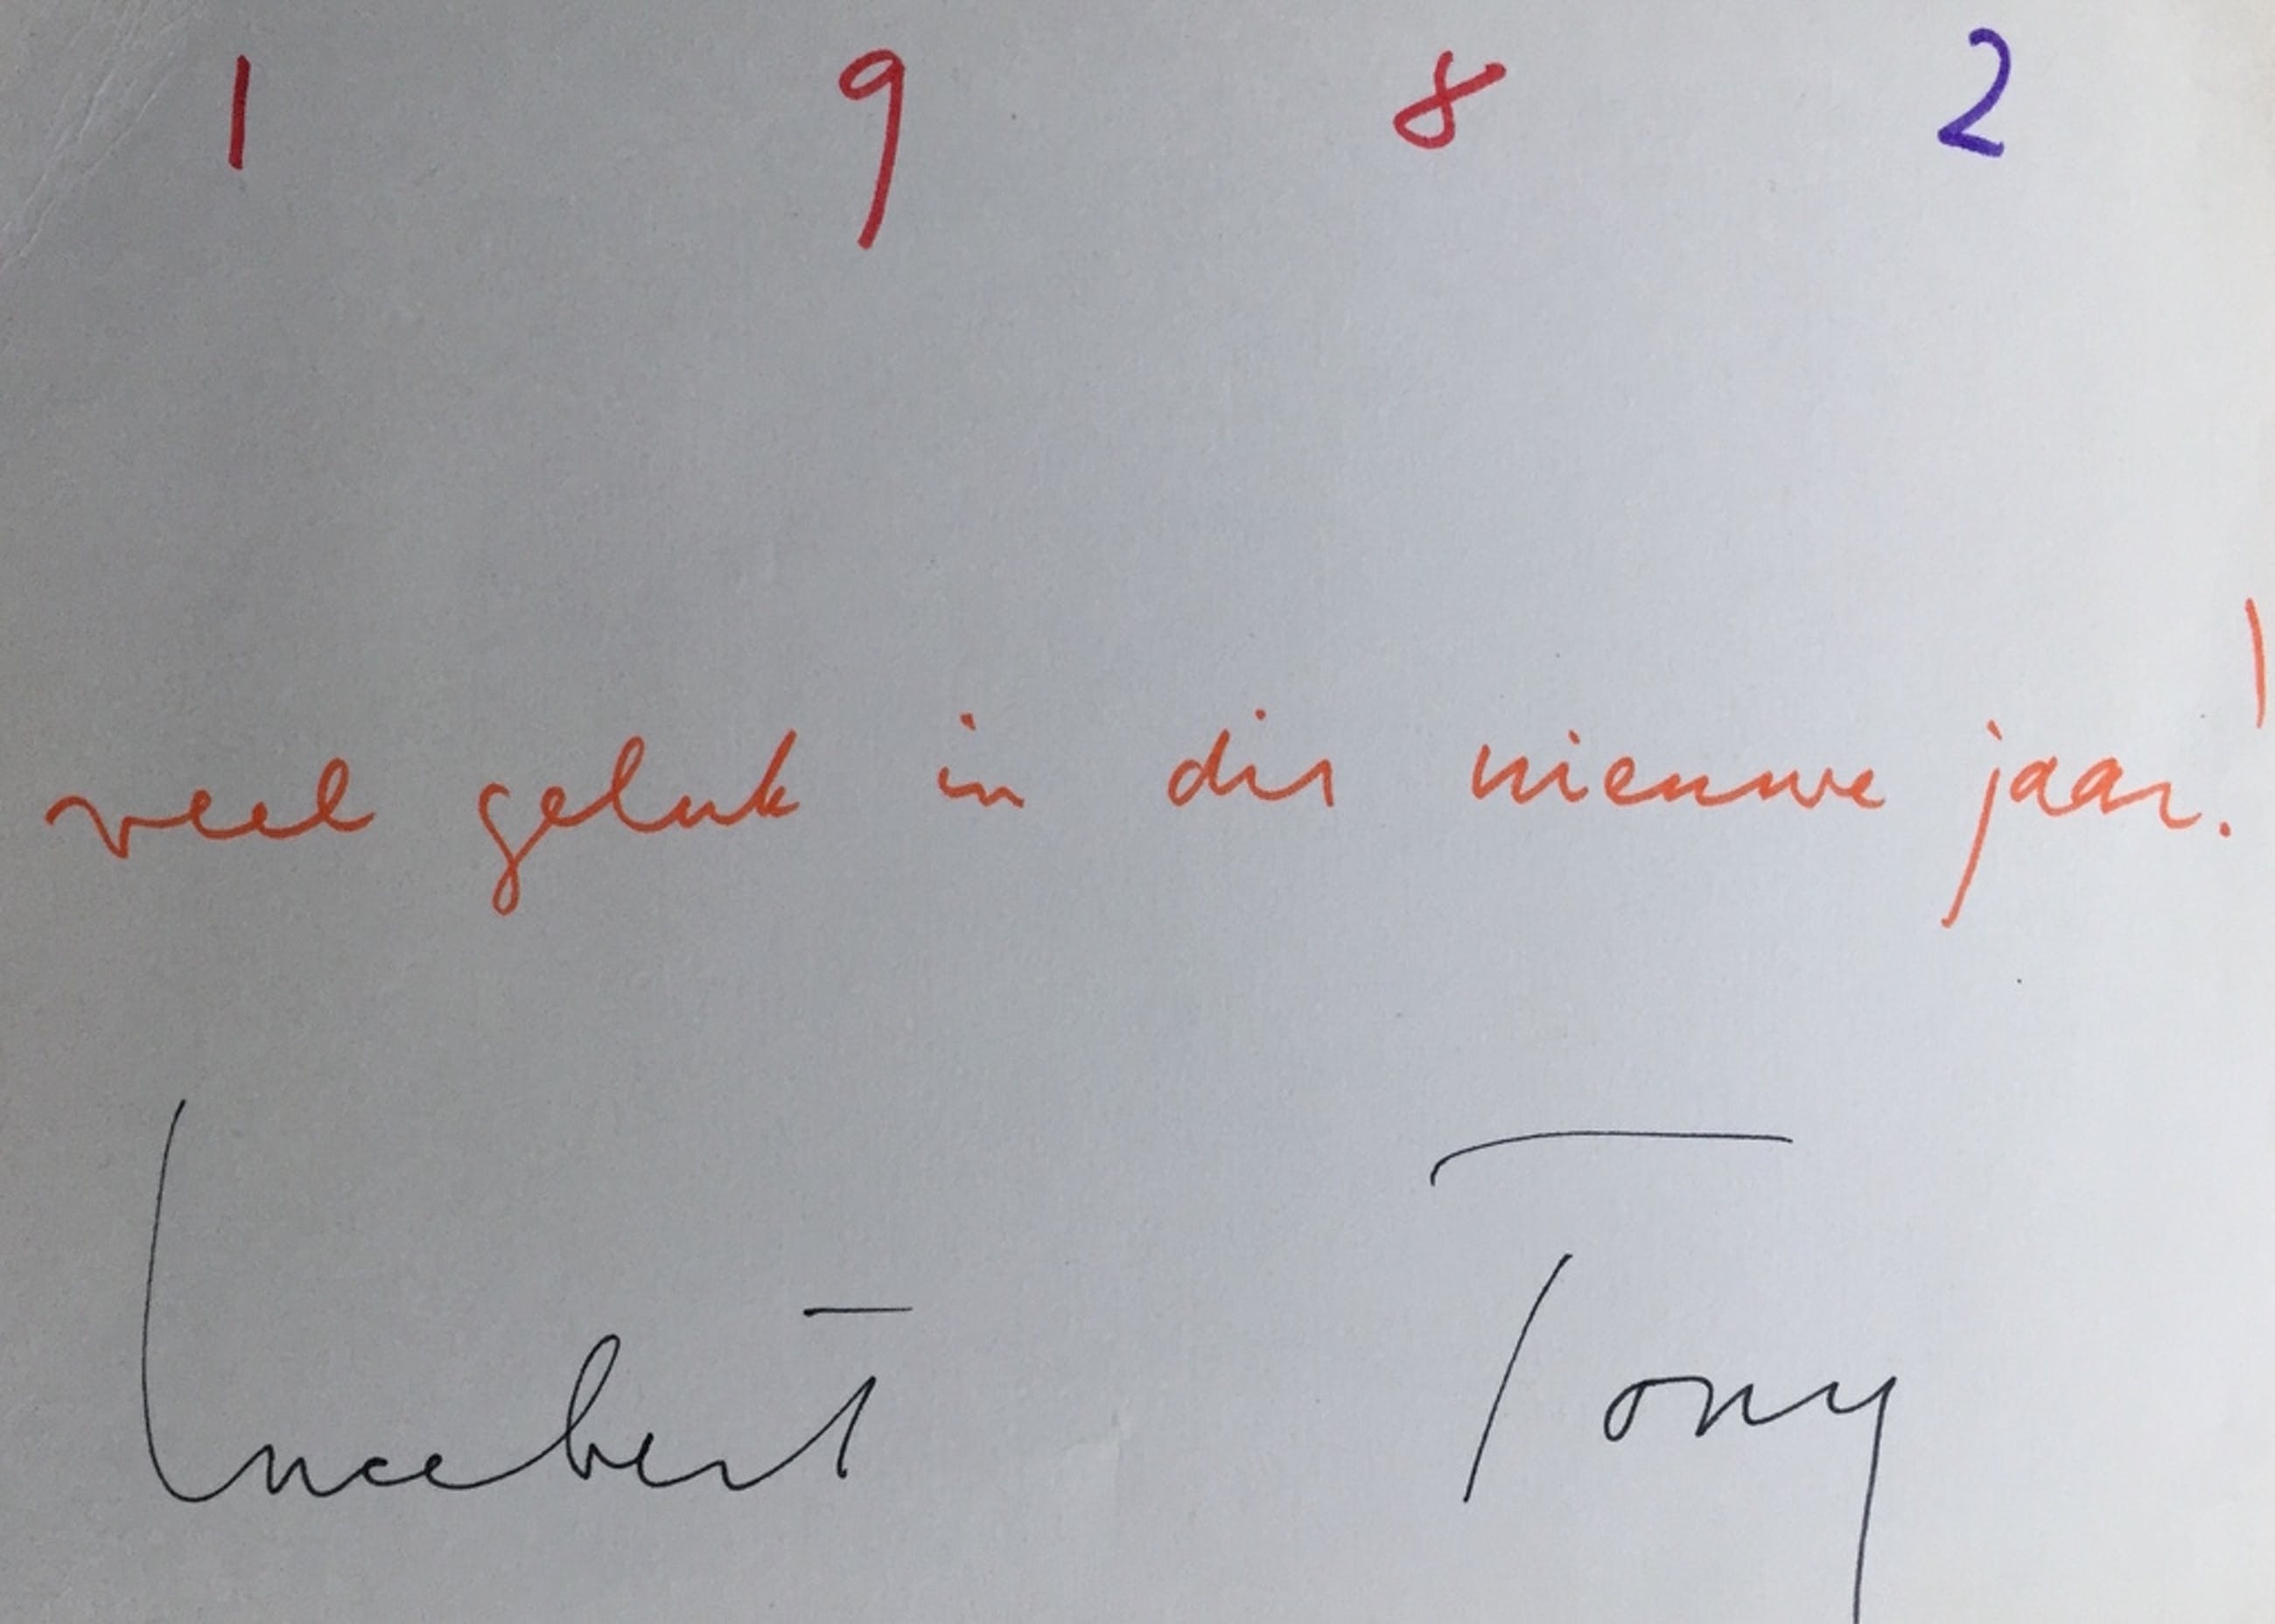 1 9 8 2
veel geluk in dit nieuwe jaar!
Lucebert Tony